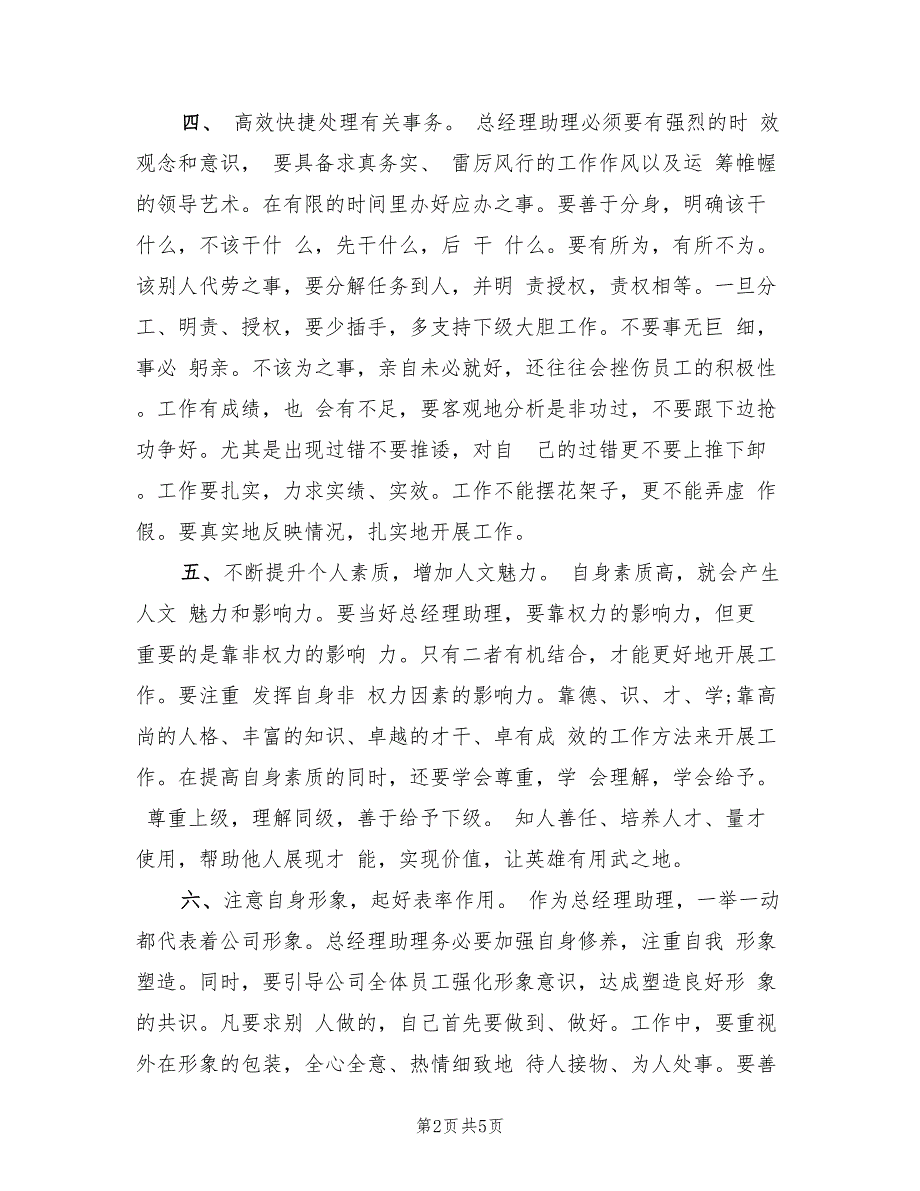 四、 高效快捷处理有关事务。 总经理助理必须要有强烈的时 效
观念和意识， 要具备求真务实、 雷厉风行的工作作风以及运 筹帷幄
的领导艺术。在有限的时间里办好应办之事。要善于分身，明确该干
什么，不该干什 么，先干什么，后 干 什么。要有所为，有所不为。
该别人代劳之事，要分解任务到人，并明 责授权，责权相等。一旦分
工、明责、授权，要少插手，多支持下级大胆工作。不要事无巨 细，
事必 躬亲。不该为之事，亲自未必就好，还往往会挫伤员工的积极性
。工作有成绩，也 会有不足，要客观地分析是非功过，不要跟下边抢
功争好。尤其是出现过错不要推诿，对自 己的过错更不要上推下卸
。工作要扎实，力求实绩、实效。工作不能摆花架子，更不能弄虚 作
假。要真实地反映情况，扎实地开展工作。
五、不断提升个人素质，增加人文魅力。 自身素质高，就会产生
人文 魅力和影响力。要当好总经理助理，要靠权力的影响力，但更
重要的是靠非权力的影响 力。只有二者有机结合，才能更好地开展工
作。要注重 发挥自身非 权力因素的影响力。靠德、识、才、学;靠高
尚的人格、丰富的知识、卓越的才干、卓有成 效的工作方法来开展工
作。在提高自身素质的同时，还要学会尊重，学 会理解，学会给予。
尊重上级，理解同级，善于给予下级。 知人善任、培养人才、量才
使用，帮助他人展现才 能，实现价值，让英雄有用武之地。
六、注意自身形象，起好表率作用。 作为总经理助理，一举一动
都代表着公司形象。总经理助理务必要加强自身修养，注重自我 形象
塑造。同时，要引导公司全体员工强化形象意识，达成塑造良好形 象
的共识。凡要求别 人做的，自己首先要做到、做好。工作中，要重视
外在形象的包装，全心全意、热情细致地 待人接物、为人处事。要善
第2页共5页